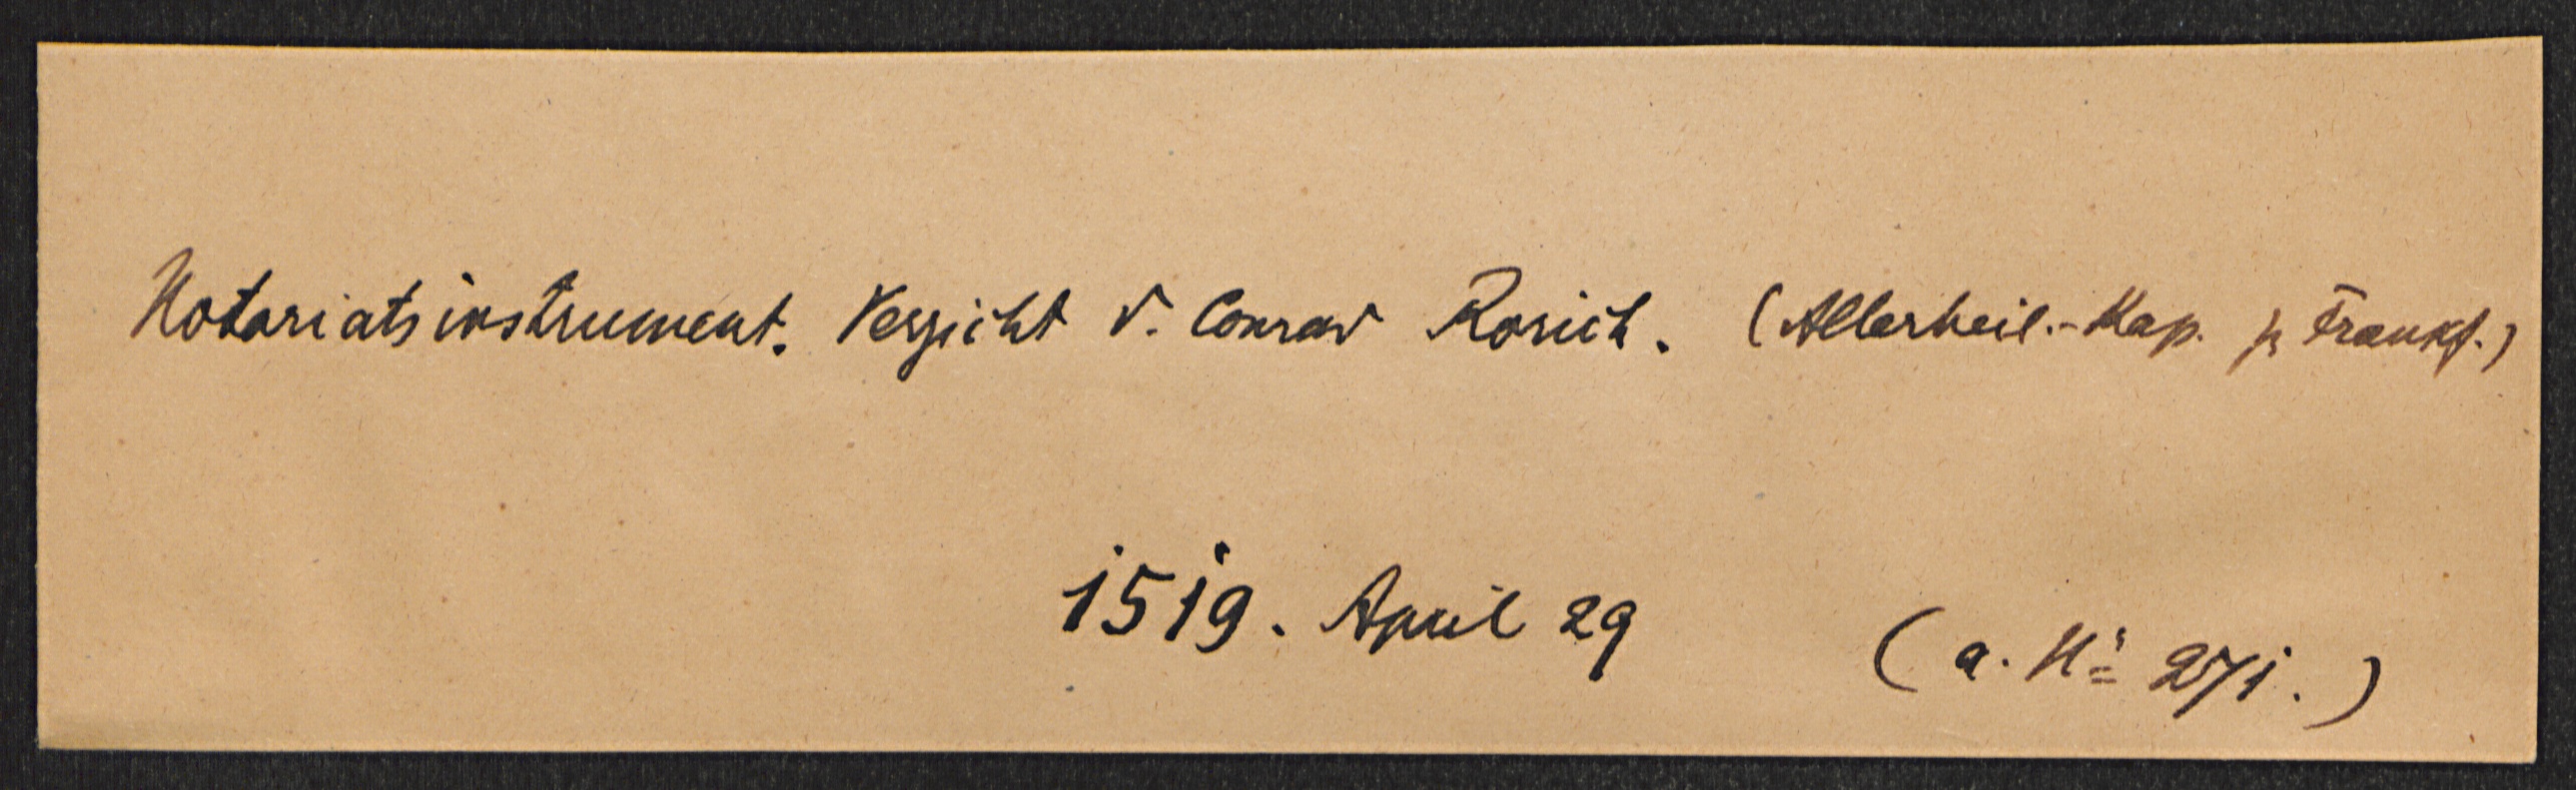 Notariatsinstrument. Verzicht v. Conrad Rorich. (Allerheil.-Kap. z. Frankf.)
1519. April 29
(a. No 271.)